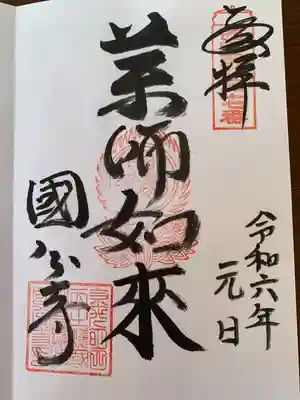 奉拝
令和六年
元日
薬師如來
國分寺